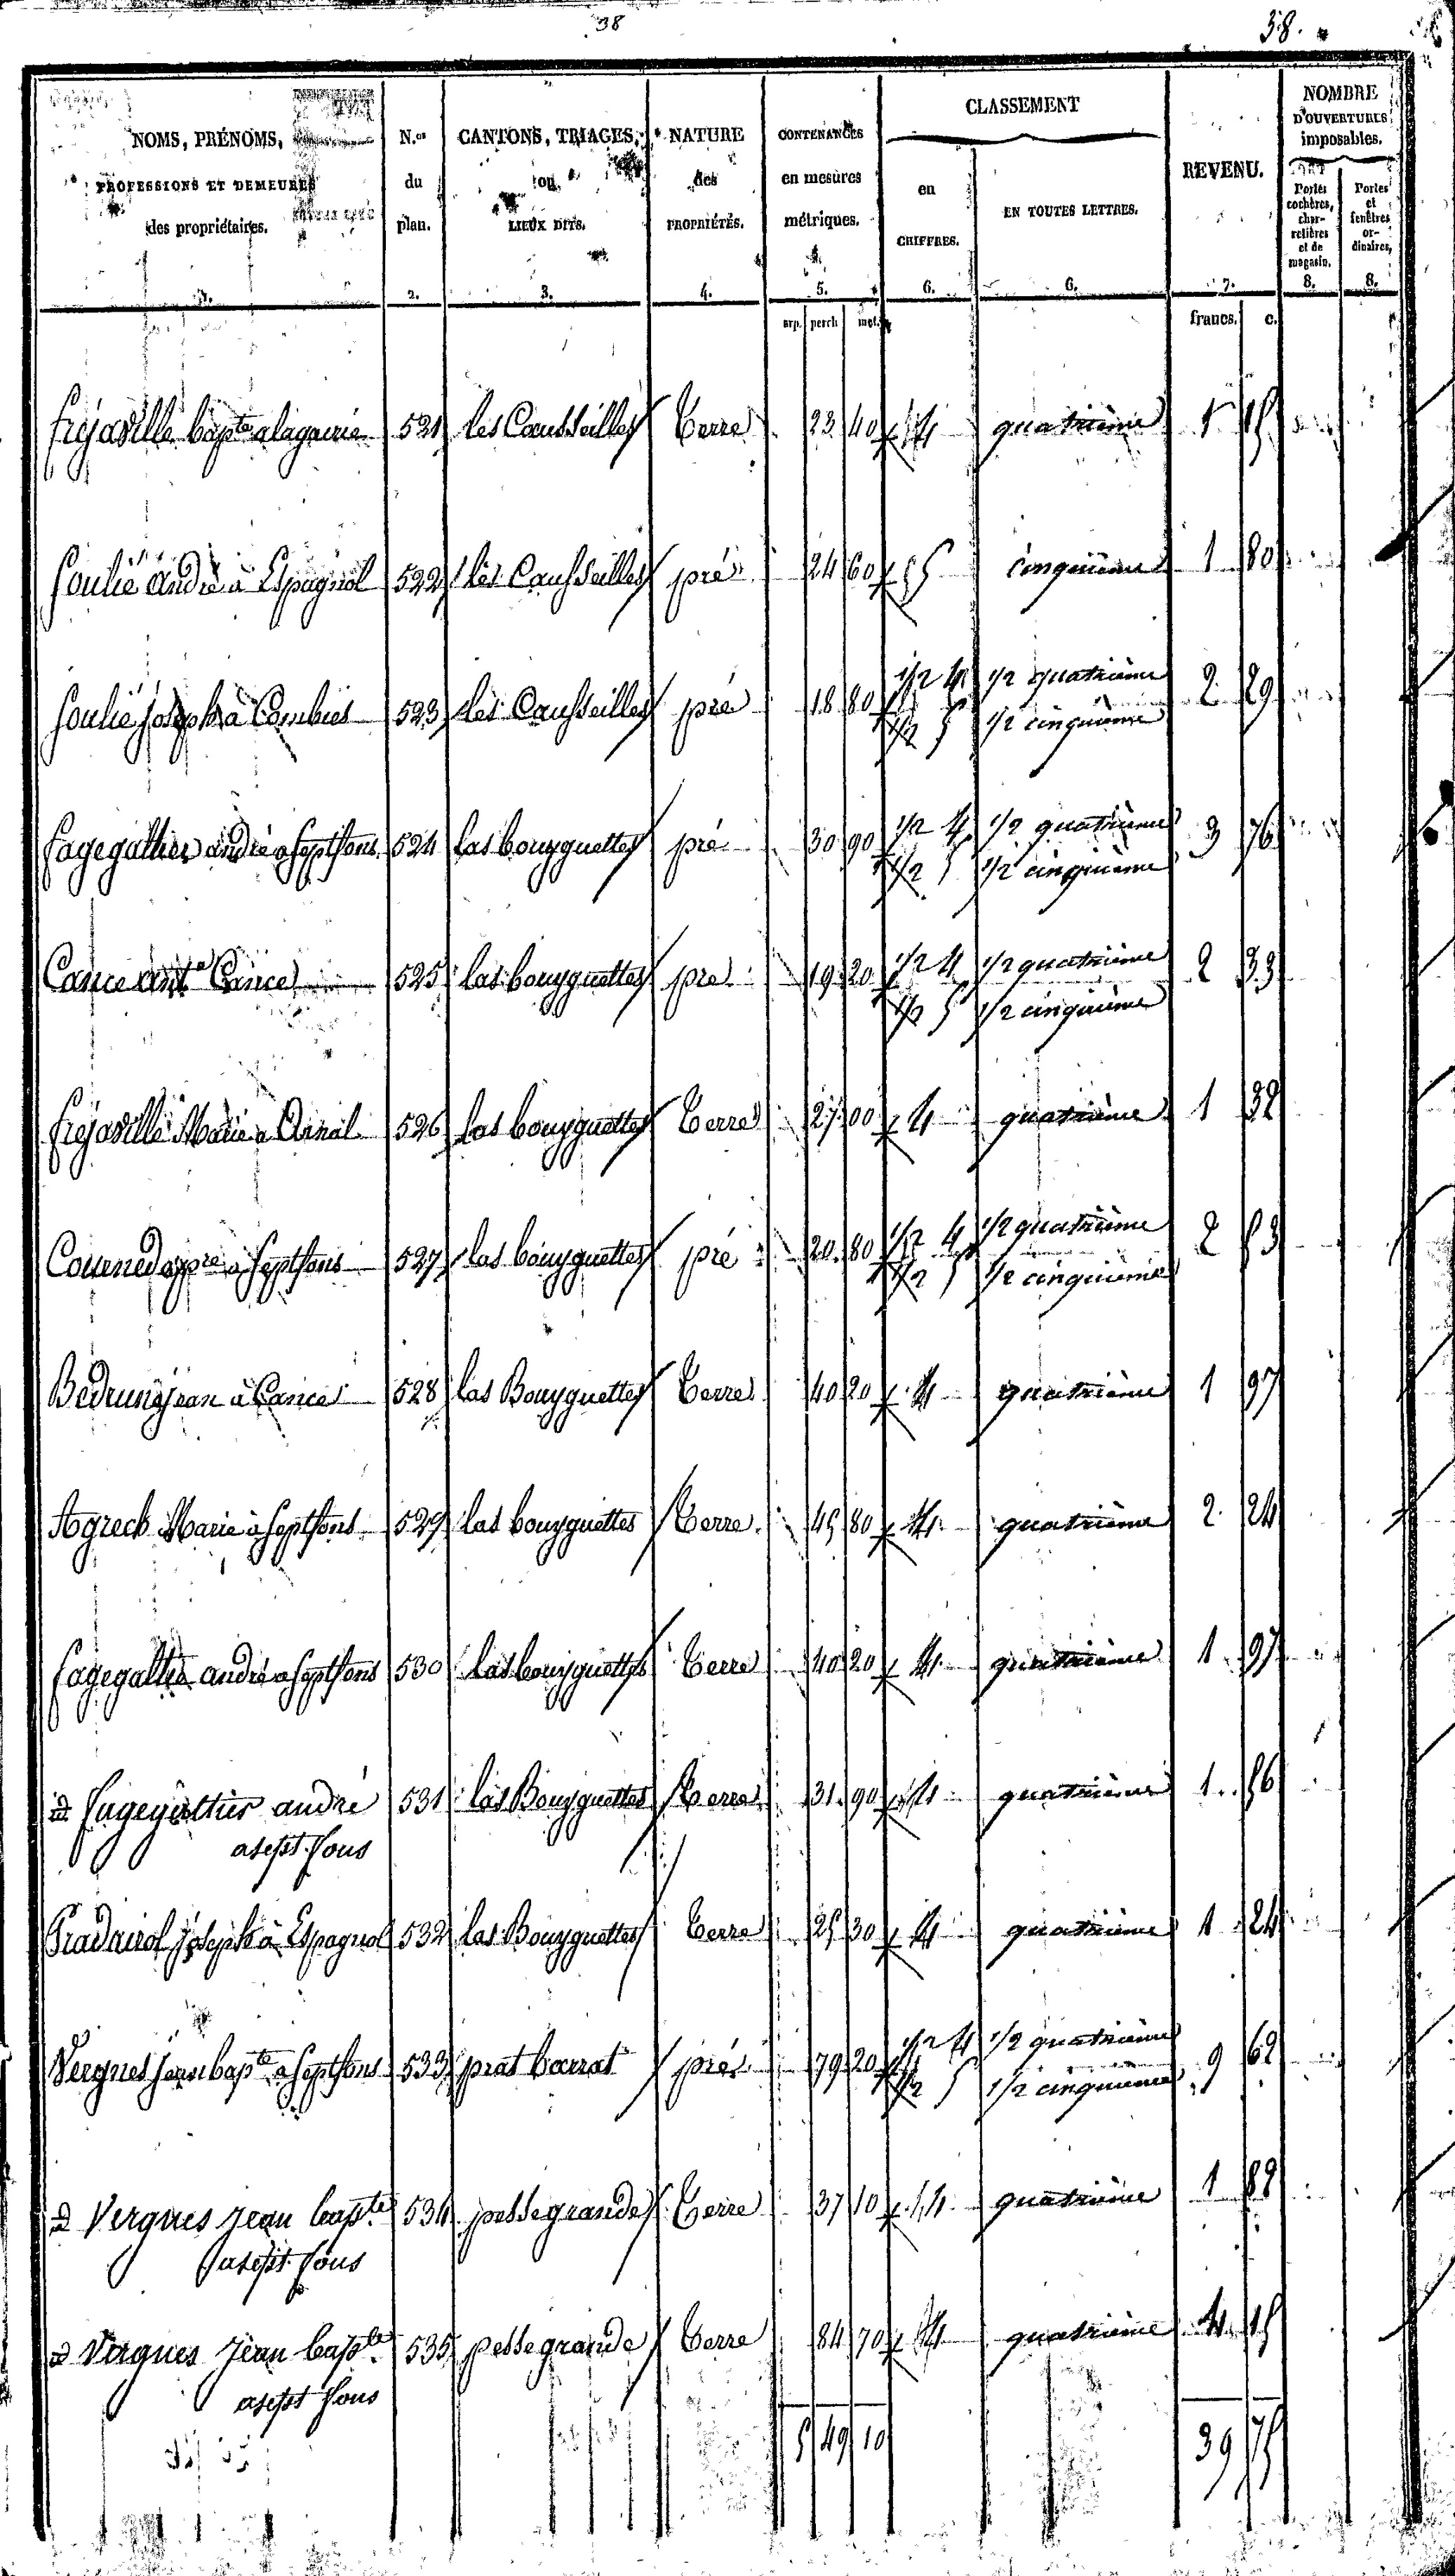 38
38.
NOMS, PRÉNOMS,
PROFESSIONS ET DEMEURES
des propriétaires.
N.os
du
plan.
CANTONS, TRIAGES,
ou
LIEUX DITS.
NATURE
des
PROPRIÉTÉS.
CONTENANCES
en mesures
métriques.
CLASSEMENT
en
CHIFFRES.
EN TOUTES LETTRES.
REVENU.
NOMBRE
D'OUVERTURES
imposables.
Portes
cochères,
char-
retières
et de
magasin.
Portes
et
fenêtres
or-
dinaires,
2. 3. 4. 5. 6. 6. 7. 8. 8.
arp. perch met. francs. c.
frejaville bapte alagarrie 521 les Causseilles Terre 23 40 4 quatrième 1 15
Soulié André à Espagnol 522 les Causseilles pré 24 60 5 cinquième 1 80
Soulié Joseph à Combies 523 les Causseilles pré 18 80 1/2 4 1/2 quatrième 2 29
1/2 5 1/2 cinquième
fagegaltier andré a septfons 524 las bouyguettes pré 30 90 1/2 4 1/2 quatrième 3 76
1/2 5 1/2 cinquième
Cance ant.e Cance 525 las bouyguettes pre 19 20 1/2 4 1/2 quatrième 2 33
1/2 5 1/2 cinquième
frejaville Marie a Arnal 526 las bouyguettes Terre 27 00 4 quatrième 1 32
pre à septfons 527 las bouyguettes pré 20 80 1/2 4 1/2 quatrième 2 53
1/2 5 1/2 cinquième
Bedrune jean à Cance 528 las Bouyguettes Terre 40 20 4 quatrième 1 97
Agrech Marie à septfons 529 las bouyguettes Terre 45 80 4 quatrième 2 24
fagegaltier andré a septfons 530 las bouyguettes Terre 40 20 4 quatrième 1 97
d fagegaltier andré 531 las Bouyguettes Terre 31 90 4 quatrième 1 56
asept fons
Pradairol joseph à Espagnol 532 las Bouyguettes Terre 25 30 4 quatrième 1 24
Vergnes Jean bapte a septfons 533 prat barrat pré 79 20 1/2 4 1/2 quatrième 9 62
1/2 5 1/2 cinquième
d Vergnes jean bapte 534 pessegrande Terre 37 10 4 quatrième 1 82
asept fons
d Vergnes jean bapte 535 pesse grande Terre 84 70 4 quatrième 4 15
asept fons
5 49 10 39 75